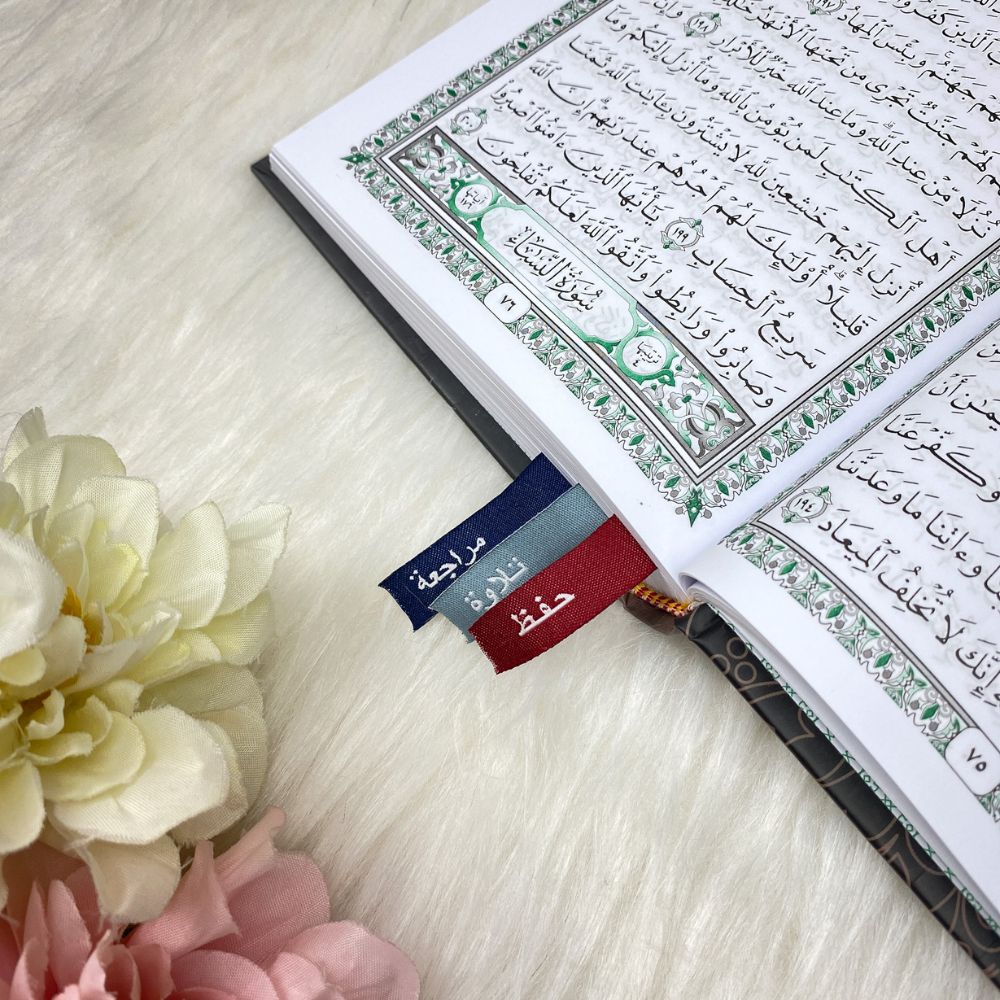 ٱلَّذِينَ كَفَرُواْ
جَهَنَّمُ وَبِئْسَ ٱلْمِهَادُ
لَهُمْ جَنَّٰتٌ تَجْرِى مِن تَحْتِهَا ٱلْأَنْهَٰرُ
نُزُلًا مِّنْ عِندِ ٱللَّهِ وَمَا عِندَ ٱللَّهِ خَيْرٌ لِّلْأَبْرَارِ ١٩٨ وَإِنَّ
أَهْلِ ٱلْكِتَٰبِ لَمَن يُؤْمِنُ بِٱللَّهِ وَمَآ أُنزِلَ إِلَيْكُمْ وَمَآ
أُنزِلَ إِلَيْهِمْ خَٰشِعِينَ لِلَّهِ لَا يَشْتَرُونَ بِـَٔايَٰتِ ٱللَّهِ ثَمَنًا
قَلِيلًا أُوْلَٰٓئِكَ لَهُمْ أَجْرُهُمْ عِندَ رَبِّهِمْ إِنَّ ٱللَّهَ
سَرِيعُ ٱلْحِسَابِ ١٩٩ يَٰٓأَيُّهَا ٱلَّذِينَ ءَامَنُواْ ٱصْبِرُواْ
وَصَابِرُواْ وَرَابِطُواْ وَٱتَّقُواْ ٱللَّهَ لَعَلَّكُمْ تُفْلِحُونَ ٢٠٠
ترتيبها ٤ سُورَةُ ٱلنِّسَاءِ
٧٦
أَنْ
وَكَفِّرْ عَنَّا
وَءَاتِنَا مَا وَعَدتَّنَا
إِنَّكَ لَا تُخْلِفُ ٱلْمِيعَادَ ١٩٤
٧٥
مراجعة
تلاوة
حفظ